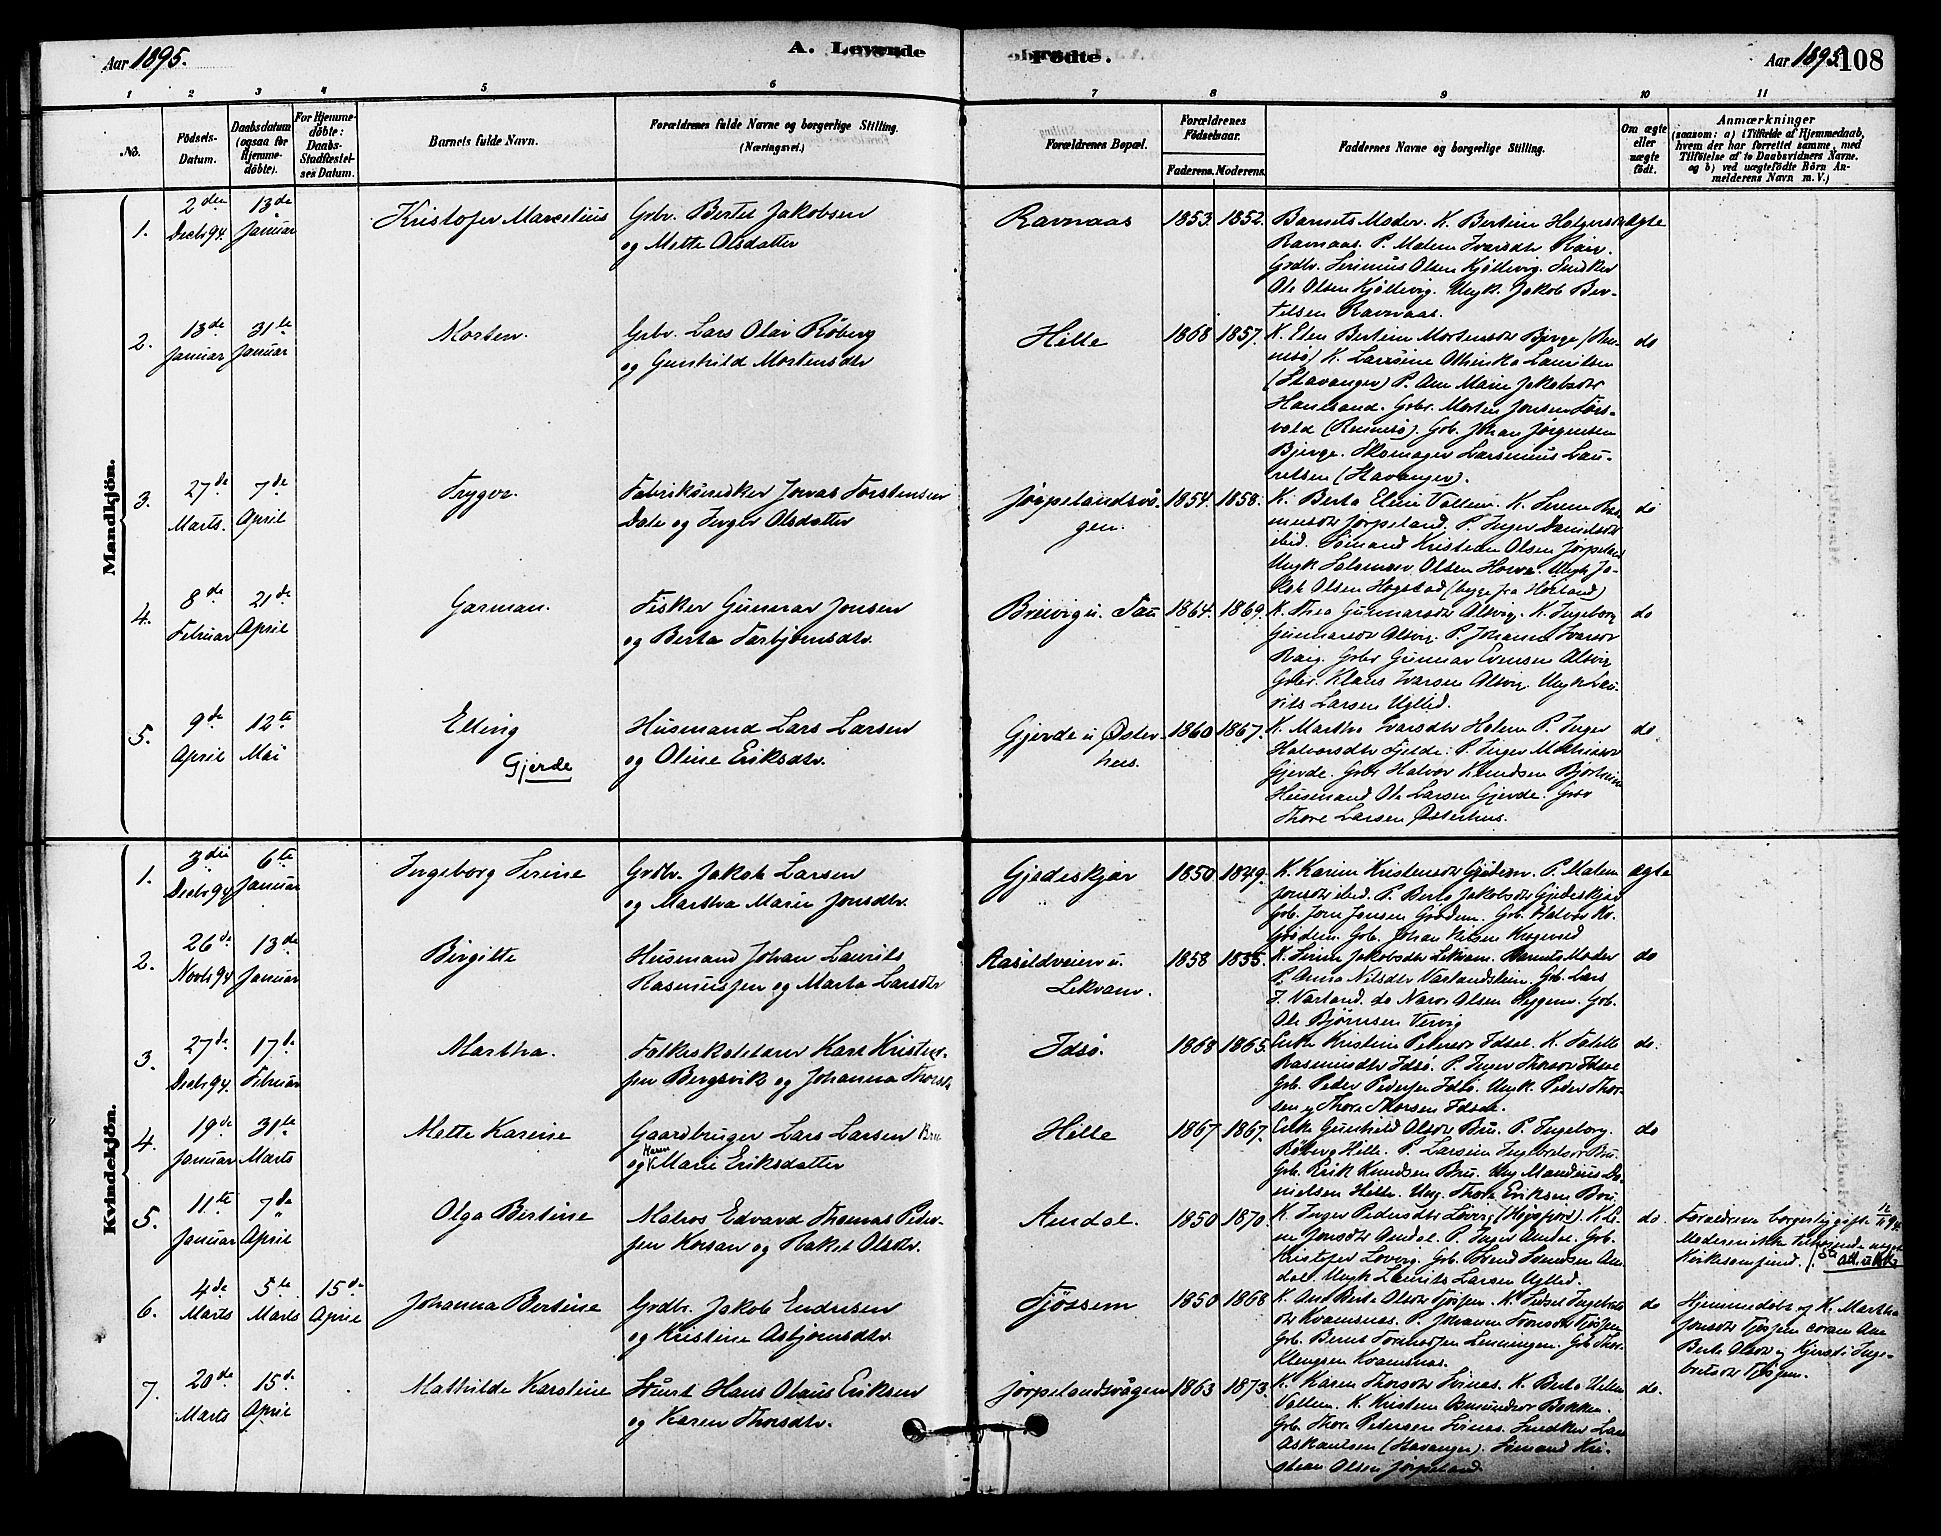 Aar 1895.
A. Levende
Fødte.
Aar 1895.
108
1 2 3 4 5 6 7 8 9 10 11
No.
Fødsels-
Datum.
Daabsdatum
(ogsaa for
Hjemme-
døbte).
For Hjemme-
døbte:
Daabs-
Stadfæstel-
ses Datum.
Barnets fulde Navn.
Forældrenes fulde Navne og borgerlige Stilling.
(Næringsvei.)
Forældrenes Bopæl.
Forældrenes
Fødselsaar.
Faderens. Moderens.
Faddernes Navne og borgerlige Stilling.
Om ægte
eller
uægte
født.
Anmærkninger
(saasom: a) i Tilfælde af Hjemmedaab,
hvem der har forrettet samme, med
Tilføielse af to Daabsvidners Navne.
og b) ved uægtefødte Børn An-
melderens Navn m. V.)
Mandkjön.
1.
2den
Decbr 94.
13de
Januar
Kristofer Marselius
Gbr. Bertel Jakobsen
og Mette Olsdatter
Ravnaas
1853. 1852.
Barnets Moder. K. Bertine Holgersdtr
Ravnaas. P. Malene Ivarsdtr Raig.
Grdbr. Serinius Olsen Kjöllevig. Snedker
Ole Olsen Kjöllevig. Ungk. Jakob Ber-
telsen Ravnaas.
ægte
2.
13de
Januar
31te
Januar
Morten.
Gbr. Lars Olai Röberg
og Gunhild Mortensdtr
Hille
1868 1857.
K. Elen Bertine Mortensdtr Bjerge (Ren-
nesö) K. Larsine Athinka Lauritsen
(Stavanger) P. Ane Marie Jakobsdtr
Hanesand. Gbr. Morten Jonsen Förs-
vold (Rennesö). Gb. Johan Jörgensen
Bjerge. Skomager Larsinius Lau-
ritsen (Stavanger).
do
3.
27de
Marts.
7de
April
Trygve.
Fabriksnedker Jonas Torstensen
Dale og Inger Olsdatter
Jörpelandsvå-
gen.
1854. 1858.
K. Berta Eline Vallem. K. Serine Ras-
musdtr Jörpeland. P. Inger Danielsdtr
ibid. Sömand Kristian Olsen Jörpeland
Ungk Salomon Olsen Horve. Ungk Ja-
kob Olsen Hogstad (begge fra Hetland)
do
4.
8de
Februar
21de
April
Garman.
Fisker Gunnar Jonsen
og Berta Torbjörnsdtr.
Breivig u. Tau
1864. 1869.
K. Thea Gunnarsdtr Alsvig. K. Ingeborg
Gunnarsdtr Alsvig. P. Johanne Ivarsdtr
Raig. Gbr Gunnar Evensen Alsvig
Gbr. Klaus Ivarsen Alsvig. Ungk Lau-
rits Larsen Ugled.
do
5.
9de
April
12te
Mai
Elling
Gjerde
Husmand Lars Larsen
og Oline Eriksdtr.
Gjerde u. Öster-
hus.
1860 1867.
K. Martha Ivarsdtr Holem P. Inger
Halvorsdtr Fjelde. P. Inger Mathiasdtr
Gjerde. Gbr Halvor Knudsen Bjørheim
Husmand Ole Larsen Gjerde. Gbr
Thore Larsen Østerhus.
do
Kvindekjön.
1.
3die
Decbr 94
6te
Januar
Ingeborg Serine
Grdbr. Jakob Larsen
og Martha Marie Jonsdtr.
Gjedeskjær
1850 1849.
K. Karine Kristensdtr P. Malene
Jonsdtr ibid. P. Berta Jakobsdtr Gjedeskjær
Gb. Jone Jonsen Grödem. Gb. Halvor
Grödem. Gb. Johan Nilsen
ægte
2.
26de
Novbr 94
13de
Januar
Birgitte
Husmand Johan Laurits
Rasmussen og Marta Larsdtr
Aasildveien u.
Lekvam.
1858 1855.
K. Serine Jakobsdtr Lekvam. Barnets Moder
P. Anna Nilsdtr Vastandstein Gb. Lars
J. Varland. do Narve Olsen Heggem. Gb.
Ole Björnsen Vervig
do
3.
27de
Decbr 94.
17de
Februar
Martha.
Folkeskolelærer Karl Kristen-
sen Bergsvik og Johanna Thorsdtr
Idsö.
1868 1865.
Enke Kristine Pedersdtr Idsal. K. Tabitte
Rasmusdtr Idsö. P. Inger Thorsdtr Idsal
Gb. Peder Pedersen Idsö. Ungk. Peder Thor-
sen og Thore Thorsen Idsal.
do.
4.
19de
Januar
31te
Marts
Mette Karine
Gaardbruger Lars Larsen Bru
og Karen Marie Eriksdatter
Hille
1867 1867.
Enke Gunhild Olsdtr Bru. P. Ingeborg
Röberg Hille. P. Larsine Ingebretsdtr Bru.
Gb. Erik Knudsen Bru. Ung Mandius Da-
nielsen Hille. Ung. Thore Eriksen Bru.
do
5.
11te
Januar
7de
April
Olga Bertine
Matros Edvard Thomas Peder-
sen Korsan og Rakel Olsdtr.
Amdal.
1850 1870.
K. Inger Pedersdtr Lövig (Högsfjord). K. Le-
ne Jonsdtr Amdal. P. Inger Amdal. Gb.
Kristofer Lövvig. Gb. Svend Svendsen Am-
dal. Ungk Laurits Larsen Ugled.
do.
Forældrene borgerlig gifte
Moderen ikke tilhørende noget
Kirkesamfund.
6.
4de
Marts
5te
Marts
15de
April
Johanna Bertine
Grdbr. Jakob Endresen
og Kristine Asbjörnsdtr.
Tjössem
1850 1868
K. Ane Berta Olsdtr Tjössem. K. Sidsel Ingebrets-
dtr Kvamsnæs. P. Johanne Tronsdtr Tjössem
Gb. Bernt Tormodsen Lemmingen. Gb Thor
Klengsen Kvamsnæs.
do
Hjemmedöbt af K. Martha
Jonsdtr Tjössem coram Ane
Berta Olsdtr og Kjersti Inge-
bretsdtr Tjössem.
7.
20de
Marts
15de
April
Mathilde Karstine
Stuert Hans Olaus Eriksen
og Karen Thorsdtr.
Jörpelandsvågen
1863 1873.
K. Karen Thorsdtr Svines. K. Berta Helene
Vallem. K. Kristine Amundsdtr Bakken.
Gb. Thore Pedersen Svines. Snedker Lars
Askautsen (Stavanger). Sömand Kri-
stian Olsen Jörpeland
do.